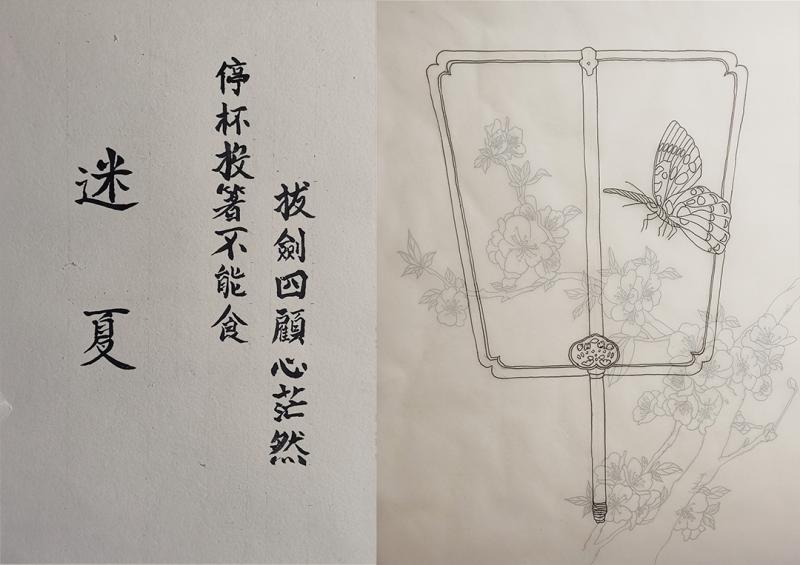 迷夏
停杯投箸不能食
拔劍四顧心茫然